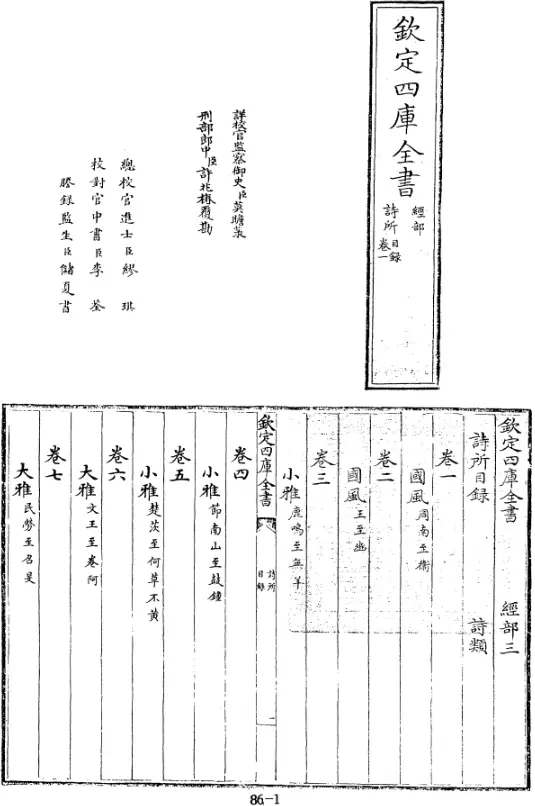 欽定四庫全書
經部
詩所
目錄
卷一
詳校官監察御史臣莫瞻菉
刑部郎中臣許兆椿覆勘
總校官進士臣繆琪
校對官中書臣李荃
謄錄監生臣儲夏書
欽定四庫全書 經部三
詩所目錄 詩類
卷一
國風周南至衛
卷二
國風王至豳
卷三
小雅鹿鳴至無羊
欽定四庫全書
詩所
目錄
一
卷四
小雅節南山至鼓鐘
卷五
小雅楚茨至何草不黃
卷六
大雅文王至卷阿
卷七
大雅民勞至召旻
86-1